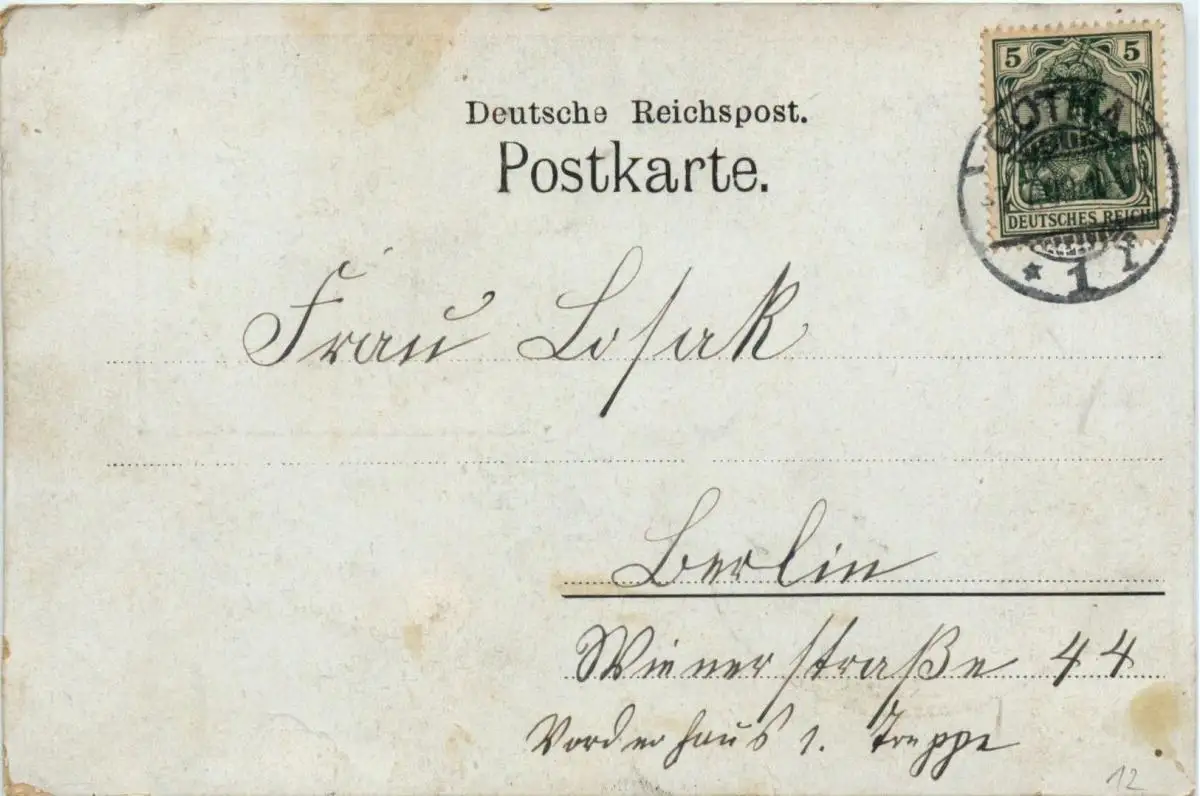 5 5
DEUTSCHES REICH
GOTHA
* 1 I
Deutsche Reichspost.
Postkarte.
Frau Losak
Berlin
Wienerstraße 44
Vorderhaus 1. Treppe
12